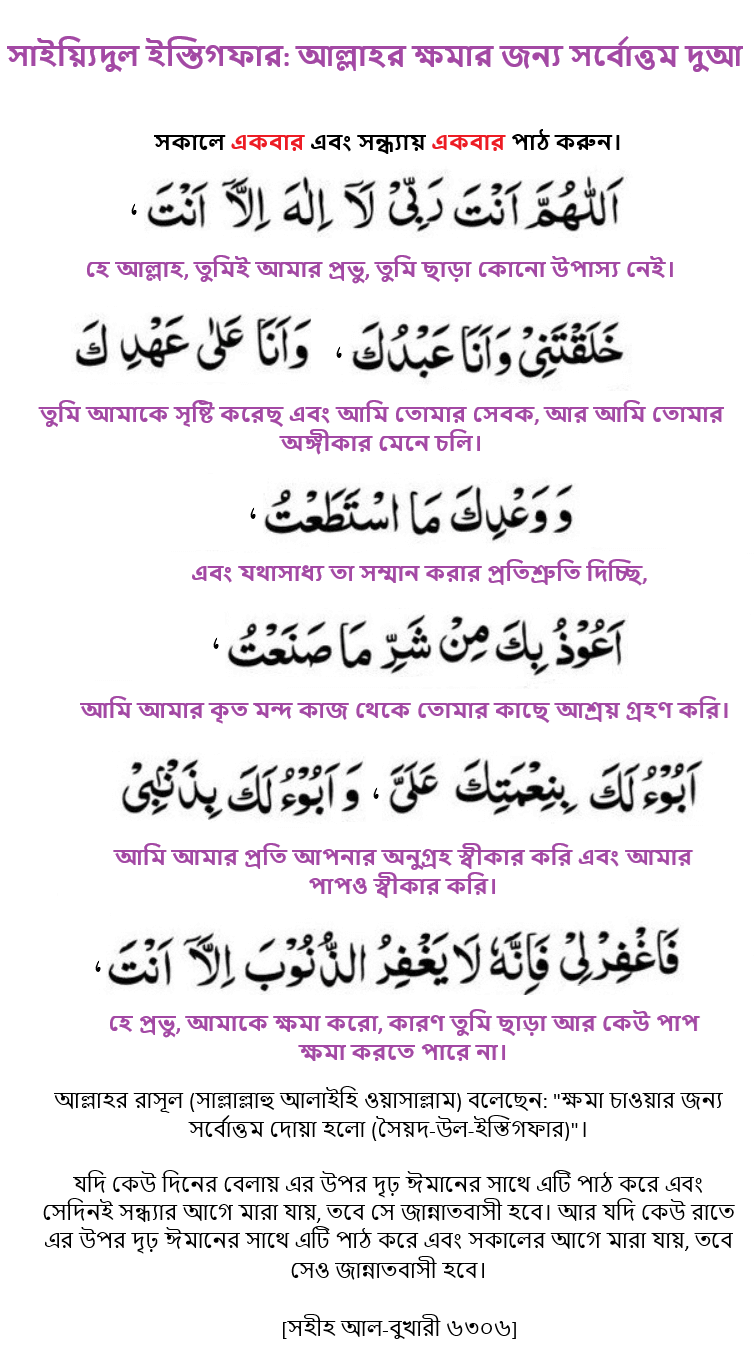 সাইয়্যিদুল ইস্তিগফার: আল্লাহর ক্ষমার জন্য সর্বোত্তম দুআ
সকালে একবার এবং সন্ধ্যায় একবার পাঠ করুন।
اَللّٰهُمَّ اَنْتَ رَبِّىْ لَآ اِلٰهَ اِلَّآ اَنْتَ ،
হে আল্লাহ, তুমিই আমার প্রভু, তুমি ছাড়া কোনো উপাস্য নেই।
خَلَقْتَنِىْ وَاَنَا عَبْدُكَ ، وَاَنَا عَلٰى عَهْدِكَ
তুমি আমাকে সৃষ্টি করেছ এবং আমি তোমার সেবক, আর আমি তোমার
অঙ্গীকার মেনে চলি।
وَ وَعْدِكَ مَا اسْتَطَعْتُ ،
এবং যথাসাধ্য তা সম্মান করার প্রতিশ্রুতি দিচ্ছি,
اَعُوْذُ بِكَ مِنْ شَرِّ مَا صَنَعْتُ ،
আমি আমার কৃত মন্দ কাজ থেকে তোমার কাছে আশ্রয় গ্রহণ করি।
اَبُوْءُ لَكَ بِنِعْمَتِكَ عَلَىَّ ، وَ اَبُوْءُ لَكَ بِذَنْۢبِىْ
আমি আমার প্রতি আপনার অনুগ্রহ স্বীকার করি এবং আমার
পাপও স্বীকার করি।
فَاغْفِرْلِىْ فَاِنَّهٗ لَا يَغْفِرُ الذُّنُوْبَ اِلَّآ اَنْتَ ،
হে প্রভু, আমাকে ক্ষমা করো, কারণ তুমি ছাড়া আর কেউ পাপ
ক্ষমা করতে পারে না।
আল্লাহর রাসূল (সাল্লাল্লাহু আলাইহি ওয়াসাল্লাম) বলেছেন: "ক্ষমা চাওয়ার জন্য
সর্বোত্তম দোয়া হলো (সৈয়দ-উল-ইস্তিগফার)"।
যদি কেউ দিনের বেলায় এর উপর দৃঢ় ঈমানের সাথে এটি পাঠ করে এবং
সেদিনই সন্ধ্যার আগে মারা যায়, তবে সে জান্নাতবাসী হবে। আর যদি কেউ রাতে
এর উপর দৃঢ় ঈমানের সাথে এটি পাঠ করে এবং সকালের আগে মারা যায়, তবে
সেও জান্নাতবাসী হবে।
[সহীহ আল-বুখারী ৬৩০৬]